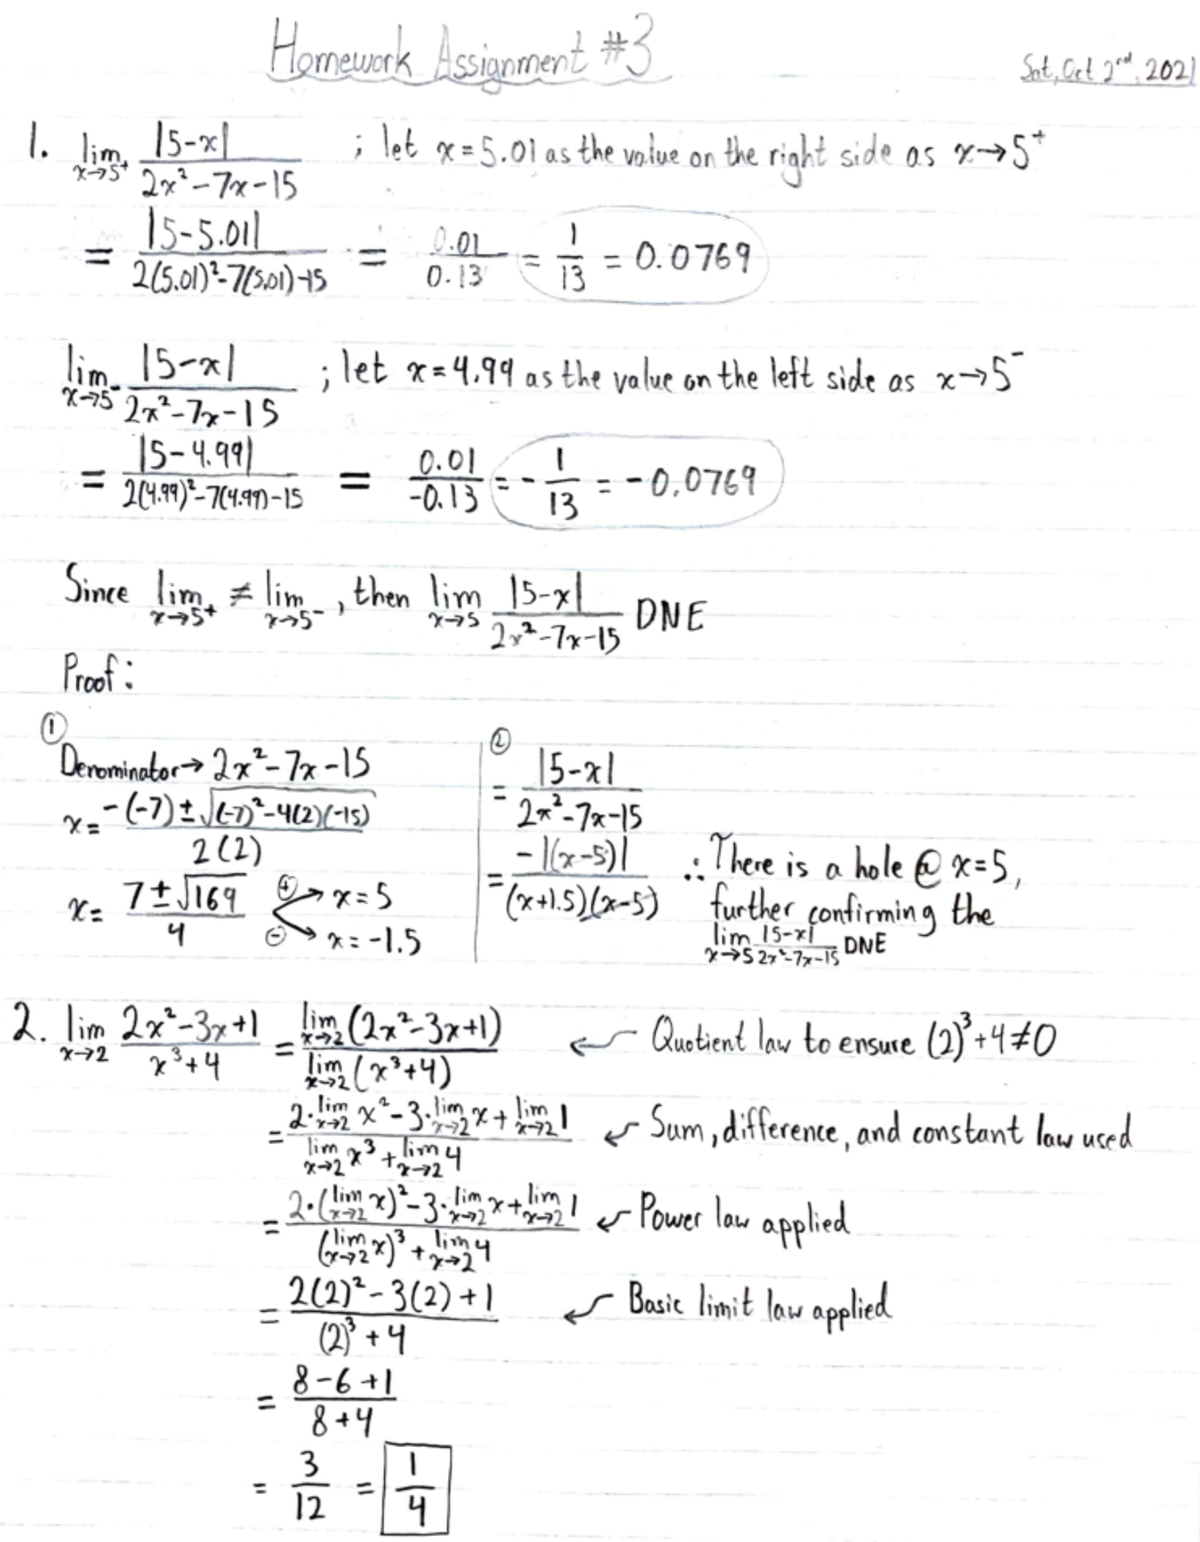 Homework Assignment #3
Sat, Oct 2nd, 2021
1. lim x→5⁺ |5-x| / (2x²-7x-15) ; let x = 5.01 as the value on the right side as x→5⁺
= |5-5.01| / (2(5.01)²-7(5.01)-15) = 0.01/0.13 = 1/13 = 0.0769
lim x→5⁻ |5-x| / (2x²-7x-15) ; let x = 4.99 as the value on the left side as x→5⁻
= |5-4.99| / (2(4.99)²-7(4.99)-15) = 0.01/-0.13 = -1/13 = -0.0769
Since lim x→5⁺ ≠ lim x→5⁻, then lim x→5 |5-x| / (2x²-7x-15) DNE
Proof:
①
Denominator → 2x²-7x-15
x = (-(-7) ± √((-7)²-4(2)(-15))) / 2(2)
x = (7 ± √169) / 4
⊕ → x = 5
⊖ → x = -1.5
②
= |5-x| / (2x²-7x-15)
= -|(x-5)| / (x+1.5)(x-5)
∴ There is a hole @ x=5,
further confirming the
lim x→5 |5-x| / (2x²-7x-15) DNE
2. lim x→2 (2x²-3x+1) / (x³+4) = lim x→2 (2x²-3x+1) / lim x→2 (x³+4) ← Quotient law to ensure (2)³+4≠0
= (2·lim x→2 x² - 3·lim x→2 x + lim x→2 1) / (lim x→2 x³ + lim x→2 4) ← Sum, difference, and constant law used
= (2·(lim x→2 x)² - 3·lim x→2 x + lim x→2 1) / ((lim x→2 x)³ + lim x→2 4) ← Power law applied
= (2(2)² - 3(2) + 1) / ((2)³ + 4) ← Basic limit law applied
= (8-6+1) / (8+4)
= 3/12 = 1/4